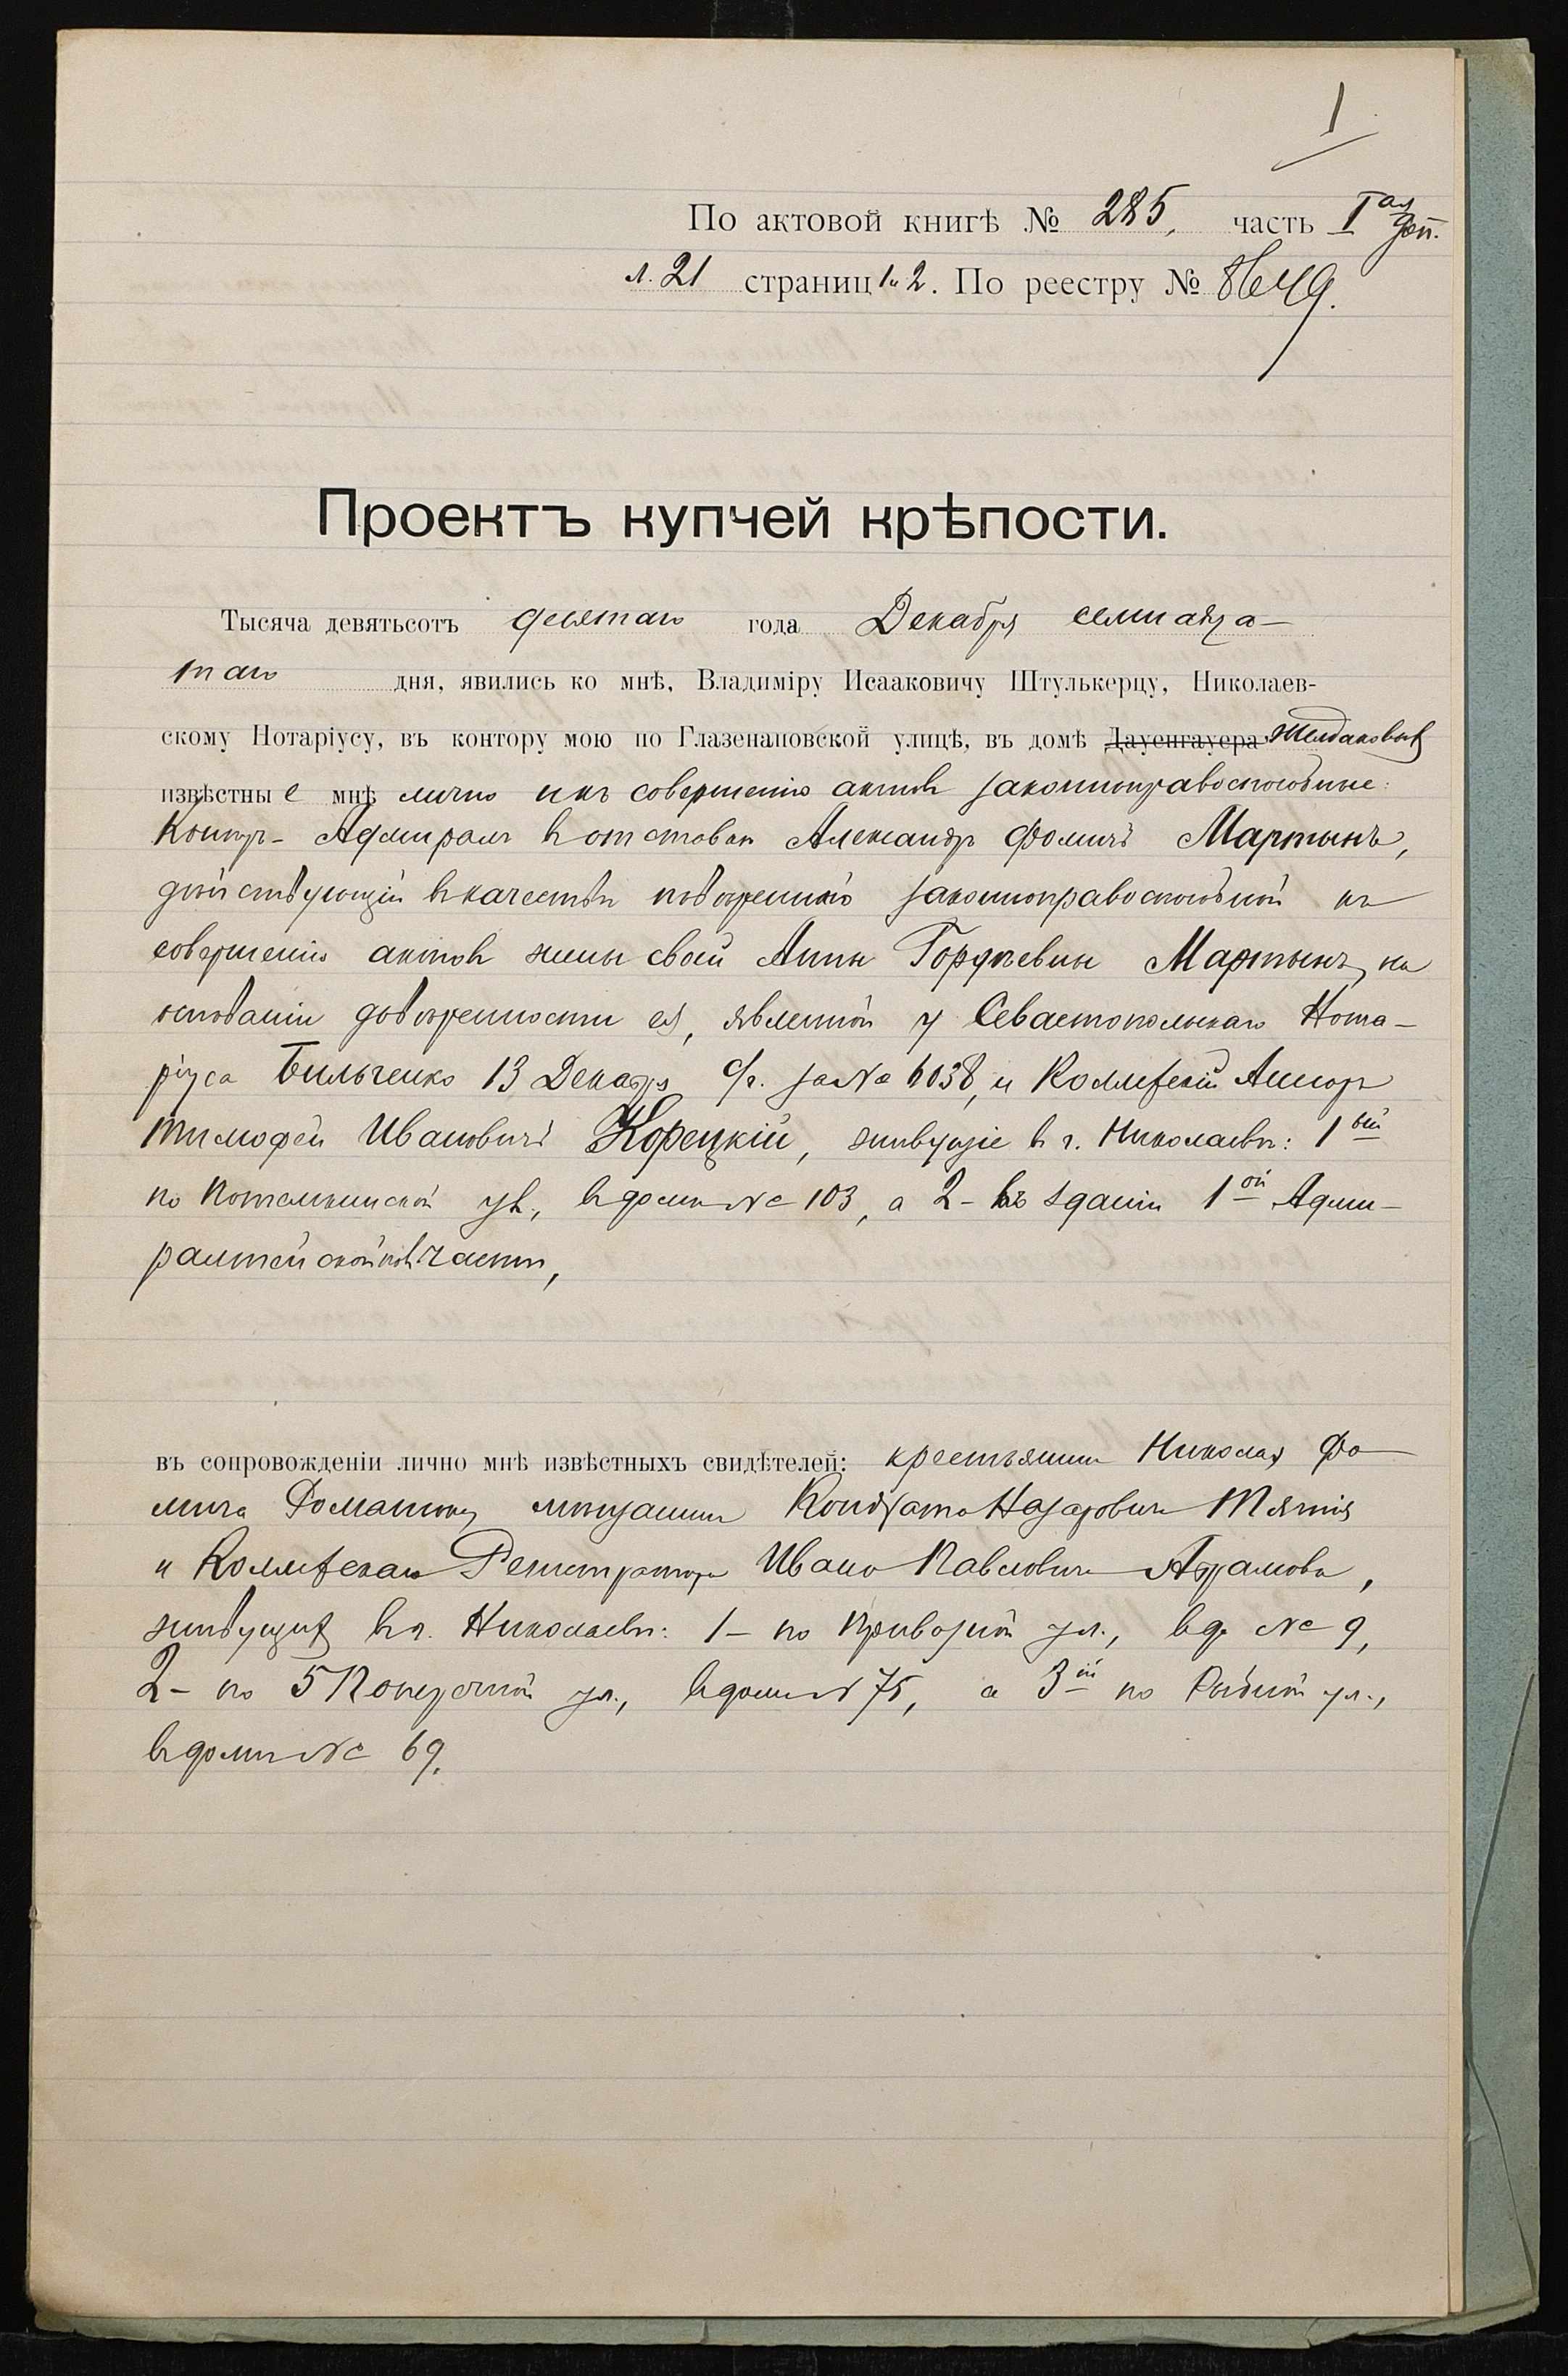 1
По актовой книгѣ № 285, часть I ая доп.
л. 21 страниц 1 и 2. По реестру № 8649.
Проектъ купчей крѣпости.
Тысяча девятьсотъ девятаго года Декабря семнадца-
таго дня, явились ко мнѣ, Владиміру Исааковичу Штулькерцу, Николаев-
скому Нотаріусу, въ контору мою по Глазенаповской улицѣ, въ домѣ Дауенгауера Желдаковыхъ
извѣстны е мнѣ лично и къ совершенію актовъ законноправоспособные:
Контръ-Адмиралъ въ отставкѣ Александръ Фомичъ Мартынъ,
дѣйствующій въ качествѣ повѣреннаго законноправоспособной къ
совершенію актовъ жены своей Анны Гордѣевны Мартынъ, на
основаніи довѣренности ея, явленной у Севастопольскаго Нота-
ріуса Бильченко 13 Декабря с/г. за № 6038, и Коллежскій Ассесоръ
Тимофей Ивановичъ Корецкій, живущіе въ г. Николаевѣ: 1 ый
по Потемкинской ул., въ домѣ № 103, а 2-въ зданіи 1 ой Адми-
ралтейской пол. части,
въ сопровожденіи лично мнѣ извѣстныхъ свидѣтелей: крестьянина Николая Фо-
мича мѣщанина Кондрата Назаровича
и Коллежскаго Регистратора Ивана Павловича Абрамова,
живущихъ въ г. Николаевѣ: 1- по Привозной ул., въ д. № 9,
2- по 5 Поперечной ул., въ домѣ № 75, а 3 ій по Рыбной ул.,
въ домѣ № 69.